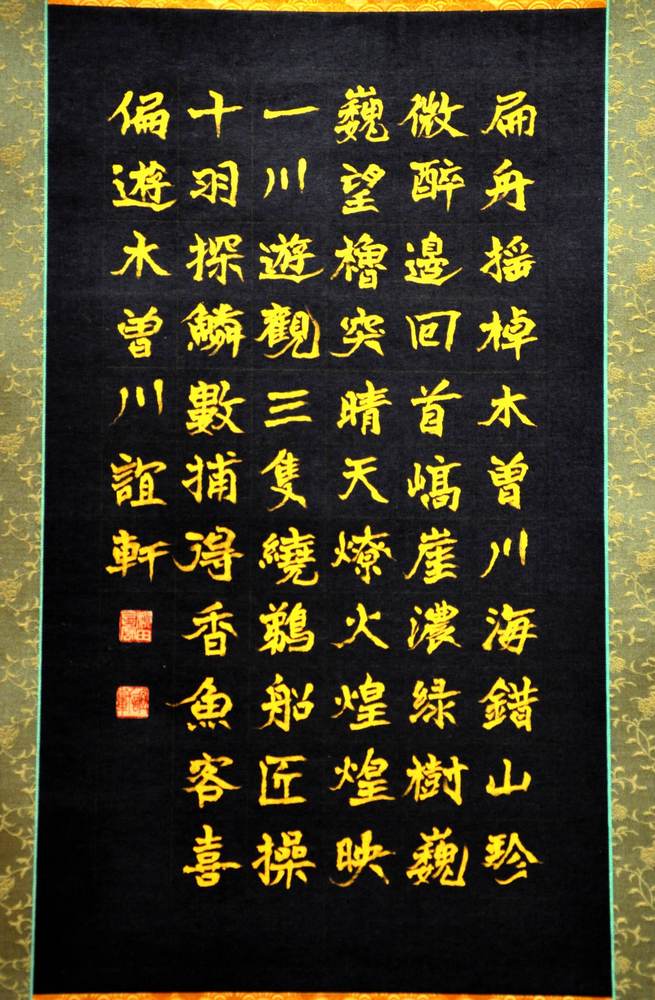 扁舟揺棹木曽川海錯山珍
微醉邊回首嵪崖濃緑樹巍
巍望櫓突晴天燎火煌煌映
一川遊觀三隻繞鵜船匠操
十羽探鱗數捕得香魚客喜
偏遊木曽川誼軒